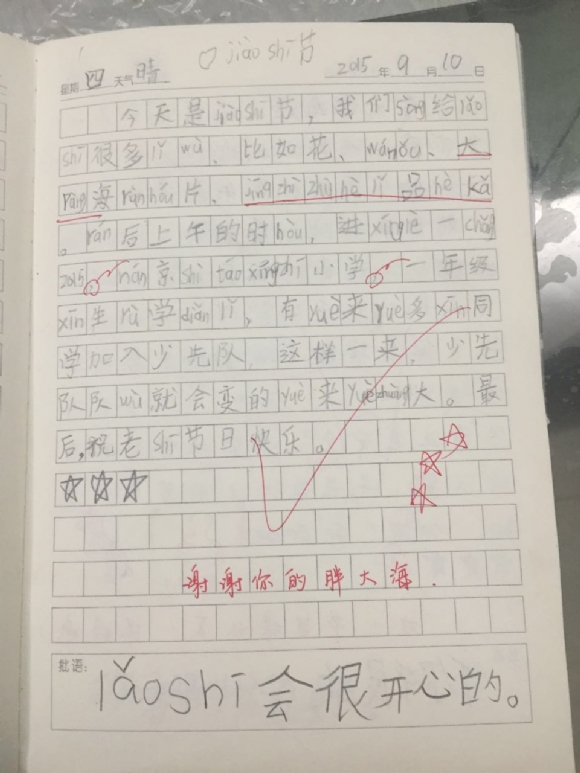 ♡ jiào shī 节
星期 四 天气 晴 2015 年 9 月 10 日
今天是jiào shī节，我们sòng给lǎo
shī很多lǐ wù、比如花、wán ǒu、大
pàng海rùn hóu片、jīng zhì zhù hè lǐ品hè kǎ
。rán后上午的时hòu，进xíng le一chǎng
2015 nán京shì táo xíng zhī小学 一年级
xīn生rù学diǎn lǐ，有yuè来yuè多xīn同
学加入少先队，这样一来，少先
队队wǔ就会变的yuè来yuè zhuàng大。最
后，祝老shī节日快乐。
谢谢你的胖大海.
批语：
lǎoshī会很开心的。